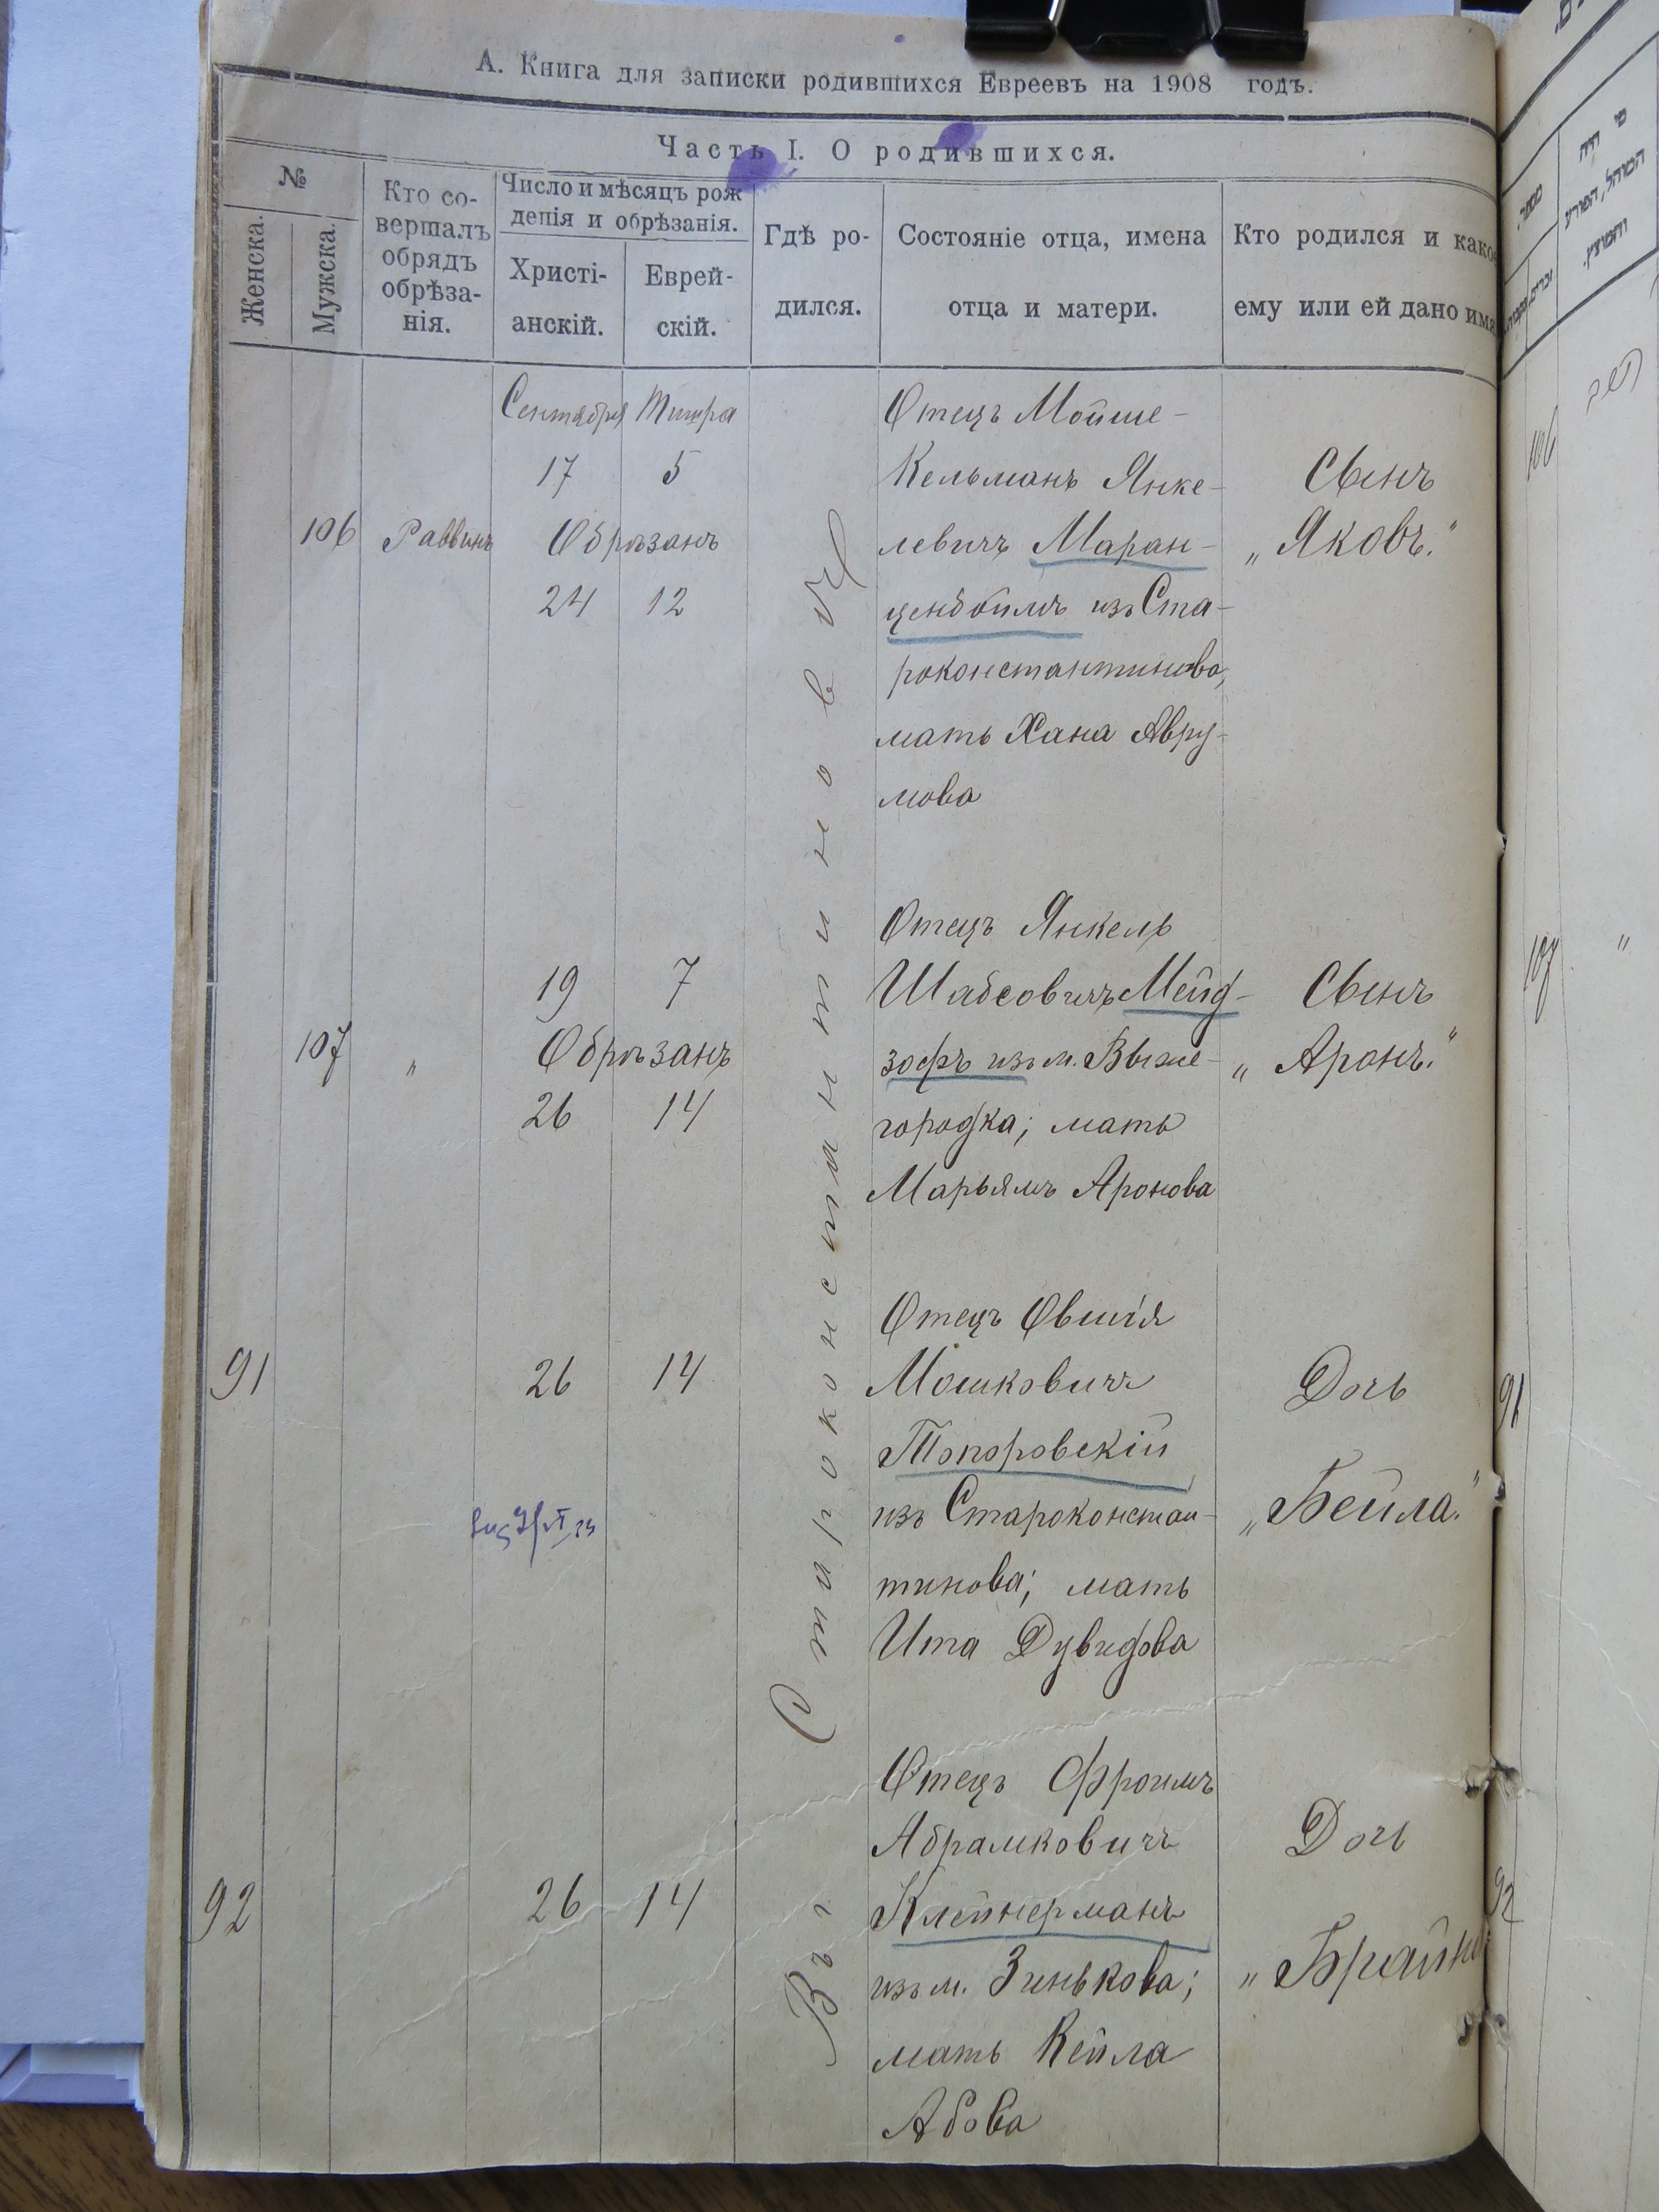 А. Книга для записки родившихся Евреевъ на 1908 годъ.
Часть I. О родившихся.
№
Женска.
Мужска.
Кто со-
вершалъ
обрядъ
обрѣза-
нія.
Число и мѣсяцъ рож
денія и обрѣзанія.
Христі-
анскій.
Еврей-
скій.
Гдѣ ро-
дился.
Состояніе отца, имена
отца и матери.
Кто родился и како
ему или ей дано имя
Въ г. Староконстантиновѣ
Сентября Тишра
17 5
106 Раввинъ Обрѣзанъ
24 12
Отецъ Мойше-
Кельманъ Янке-
левичъ Маран-
ценбоимъ изъ Ста-
роконстантинова,
мать Хана Авру-
мова
Сынъ
„Яковъ.“
19 7
107 „ Обрѣзанъ
26 14
Отецъ Янкель
Шабсовичъ Мейд-
зофъ изъ м. Выше-
городка; мать
Марьямъ Аронова
Сынъ
„Аронъ.“
91 26 14
Отецъ Овшія
Мошковичъ
Топоровскій
изъ Староконстан-
тинова; мать
Ита Дувидова
Дочь
„Бейла.“
92 26 14
Отецъ Фроимъ
Абрамковичъ
Клейнерманъ
изъ м. Зинькова;
мать Кейла
Абова
Дочь
„Брайна
מספר
מי היה
המוהל, הפורע
והמוצץ.
106
107
"
91
92